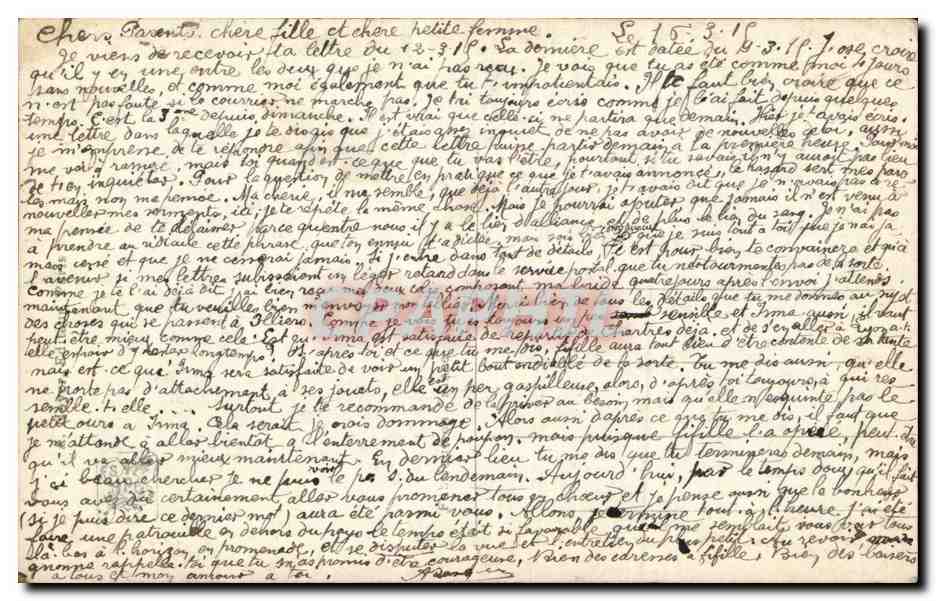 Chers Parents, chère fille et chère petite femme. Le 15.3.15
Je viens de recevoir ta lettre du 12-3-15. La dernière est datée du 9.3.15. J'ose croire
qu'il y en une entre les deux que je n'ai pas reçu. Je vois que tu as été comme moi jours
sans nouvelles, et comme moi également que tu t'impatientais. Il faut bien croire que ce
n'est pas faute si le courrier ne marche pas. Je t'ai toujours écris comme je l'ai fait depuis quelques
temps. C'est la 3ème depuis dimanche. Il est vrai que celle-ci ne partira que demain. Hier je t'avais écris
une lettre dans laquelle je te disais que j'étais assez inquiet de ne pas avoir de nouvelles de toi, aussi
je m'empresse de te répondre afin que cette lettre puisse partir demain à la première heure.
me voilà rassuré, mais toi quand est-ce que tu vas l'être, pourtant si tu savais il n'y aurait pas lieu
de t'en inquiéter. Pour la question de mettre en pratique ce que je t'avais annoncé, le hasard sert mes
mais non ma pensée. Ma chérie, il me semble que déjà l'autre jour je t'avais dit que je n'avais pas à re-
nouveller mes serments, ici je te répète la même chose. Mais je pourrai ajouter que jamais il n'est venu à
ma pensée de te délaisser parce qu'entre nous il y a le lien d'alliance et de plus le lien du sang. Je n'ai pas
à prendre au ridicule cette phrase que ton ennui t'a dictée, mais que je suis tout à toi que je n'ai ja-
mais cessé et que je ne cesserai jamais. Si j'entre dans tant de détails, c'est pour bien te convaincre et qu'à
l'avenir si mes lettres subissaient un léger retard dans le service postal, que tu ne te tourmentes pas de la sorte.
Comme je te l'ai déjà dit, j'ai bien reçu composant ma quatre jours après l'envoi j'attends
maintenant que tu veuilles bien envoyer bien de tous les détails que tu me donnes au sujet
des choses qui se passent à Illiers. je vois tu es toujours un peu et Irma aussi
peut-être mieux comme cela. Irma est satisfaite de repartir de Chartres déjà, et de s'en aller à Lyon a-t-
elle espoir d'y rester longtemps? D'après toi et ce que tu me dis, fifille aura tout lieu d'être contente de sa tante
mais est-ce que Irma sera satisfaite de voir un petit bout endiablé de la sorte. Tu me dis aussi qu'elle
ne porte pas d'attachement à ses jouets, elle est un peu gaspilleuse, alors, d'après toi toujours, à qui res-
semble-t-elle .... Surtout je te recommande de la priver au besoin mais qu'elle n'esquinte pas le
petit ours à Irma. Cela serait je crois dommage. Alors aussi d'après ce que tu me dis, il faut que
je m'attende à aller bientôt à l'enterrement de poupon, mais puisque fifille l'a opéré, peut-être
qu'il va aller mieux maintenant. En dernier lieu tu me dis que tu termineras demain, mais
j'ai beau chercher je ne puis voir le du lendemain. Aujourd'hui, par le temps doux qu'il fait
vous avez dû certainement aller vous promener tous en chœur et je pense aussi que le bonheur
(si je puis dire ce dernier mot) aura été parmi vous. Allons, je termine tout à l'heure j'ai été
faire une patrouille en dehors du pays le temps était si favorable qu'il me semblait vous voir tous
là-bas à l'horizon, en promenade, et se disputer la vue et l'entretien du plus petit. Au revoir
gnonne rappelle-toi que tu m'as promis d'être courageuse, Bien des caresses à fifille, Bien des baisers
à tous et mon amour à toi.
GRAPHT